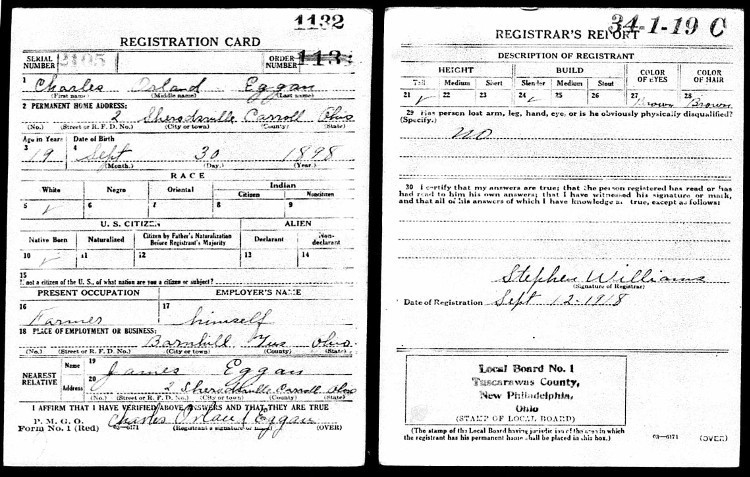 1132
REGISTRATION CARD
SERIAL NUMBER 2105 ORDER NUMBER 1134
1 Charles Orland Eggan
(First name) (Middle name) (Last name)
2 PERMANENT HOME ADDRESS:
2 Sherodsville Carroll Ohio
(No.) (Street or R. F. D. No.) (City or town) (County) (State)
Age in Years Date of Birth
3 19 4 Sept 30 1898
(Month.) (Day.) (Year.)
RACE
White Negro Oriental Indian
Citizen Noncitizen
5 ✓ 6 7 8 9
U. S. CITIZEN ALIEN
Native Born Naturalized Citizen by Father's Naturalization Before Registrant's Majority Declarant Non-declarant
10 ✓ 11 12 13 14
15
If not a citizen of the U. S., of what nation are you a citizen or subject?
PRESENT OCCUPATION EMPLOYER'S NAME
16 Farmer 17 himself
18 PLACE OF EMPLOYMENT OR BUSINESS:
Barnhill Tus Ohio
(No.) (Street or R. F. D. No.) (City or town) (County) (State)
NEAREST RELATIVE Name 19 James Eggan
Address 20 2 Sherodsville Carroll Ohio
(No.) (Street or R. F. D. No.) (City or town) (County) (State)
I AFFIRM THAT I HAVE VERIFIED ABOVE ANSWERS AND THAT THEY ARE TRUE
P. M. G. O.
Form No. 1 (Red) 03—6171 Charles Eggan
(Registrant's signature or mark) (OVER)
34-1-19 C
REGISTRAR'S REPORT
DESCRIPTION OF REGISTRANT
HEIGHT BUILD COLOR OF EYES COLOR OF HAIR
Tall Medium Short Slender Medium Stout
21 ✓ 22 23 24 ✓ 25 26 27 Brown 28 Brown
29 Has person lost arm, leg, hand, eye, or is he obviously physically disqualified?
(Specify.)
no
30 I certify that my answers are true; that the person registered has read or has
had read to him his own answers; that I have witnessed his signature or mark,
and that all of his answers of which I have knowledge are true, except as follows:
Stephen Williams
(Signature of Registrar)
Date of Registration Sept 12-1918
Local Board No. 1
Tuscarawas County,
New Philadelphia,
Ohio
(STAMP OF LOCAL BOARD)
(The stamp of the Local Board having jurisdiction of the area in which
the registrant has his permanent home shall be placed in this box.)
03—6171 (OVER)